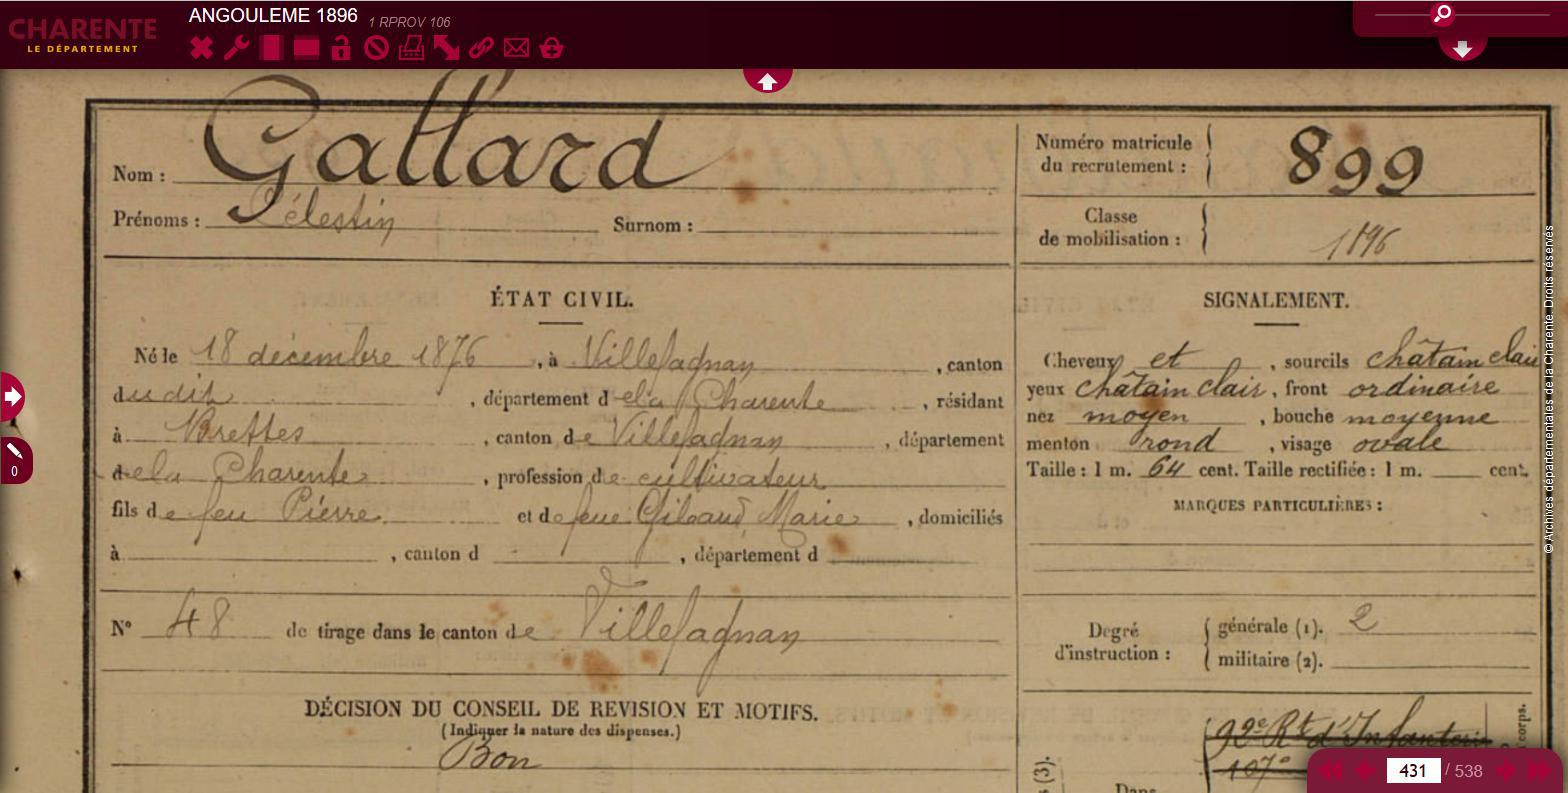 CHARENTE
LE DÉPARTEMENT
ANGOULEME 1896 1 RPROV 106
Nom : Gallard
Prénoms : Célestin Surnom :
Numéro matricule du recrutement : 899
Classe de mobilisation : 1896
ÉTAT CIVIL.
Né le 18 décembre 1876, à Villefagnan, canton
dudit, département de la Charente, résidant
à Brettes, canton de Villefagnan, département
de la Charente, profession de cultivateur
fils de feu Pierre et de feue Marie, domiciliés
à , canton d , département d
N° 48 de tirage dans le canton de Villefagnan
DÉCISION DU CONSEIL DE REVISION ET MOTIFS.
(Indiquer la nature des dispenses.)
Bon
SIGNALEMENT.
Cheveux et , sourcils châtain clair
yeux châtain clair, front ordinaire
nez moyen, bouche moyenne
menton rond, visage ovale
Taille : 1 m. 64 cent. Taille rectifiée : 1 m. cent.
MARQUES PARTICULIÈRES :
Degré d'instruction : générale (1). 2
militaire (2).
92e Rt d'Infanterie
107e
Dans
s (3).
corps.
© Archives départementales de la Charente. Droits réservés
0
431 / 538